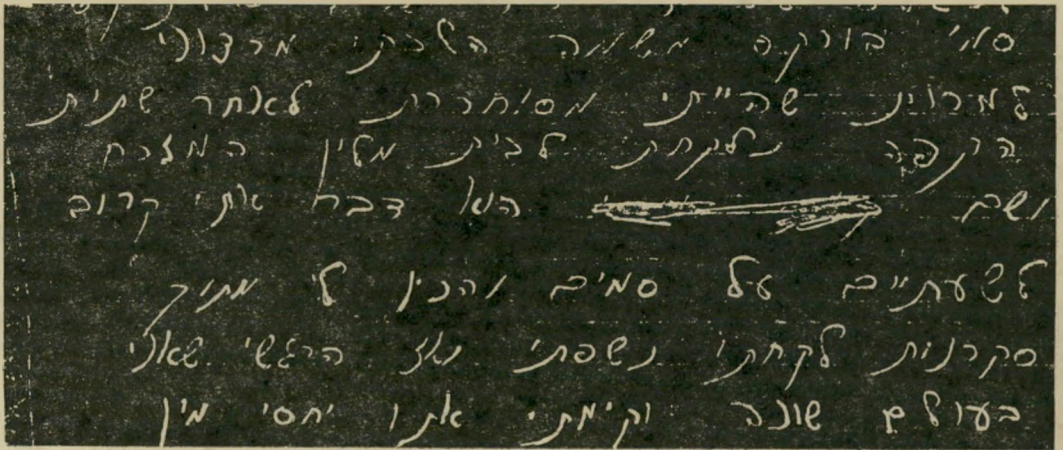 סמי בורקה משמה הלכתי מרצוני
למרות שהייתי מסוחררת לאחר שתית
הקפה נלקחתי לבית מלון המזרח
ושם הוא דבר אתי קרוב
לשעתיים על סמים והכין לי מתוך
סקרנות לקחתי נשפתי ואז הרגשי שאני
בעולם שונה וקימתי אתו יחסי מין